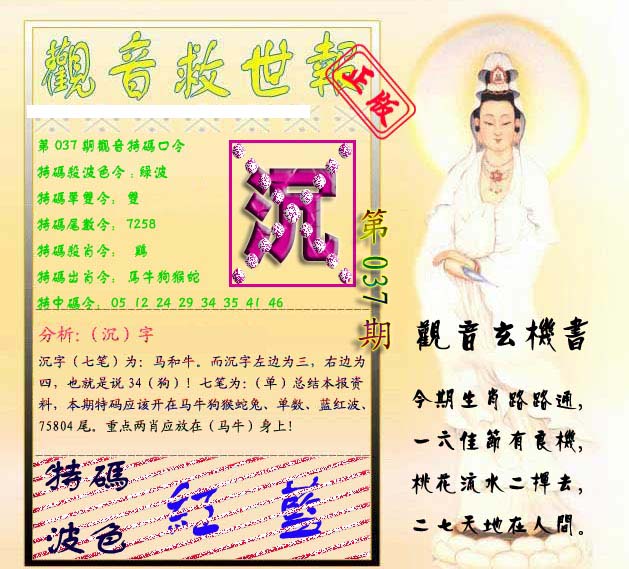 觀音救世報
正版
第037期觀音特碼口令
特碼殺波色令:綠波
特碼單雙令: 雙
特碼尾數令: 7258
特碼殺肖令: 鷄
特碼出肖令: 馬牛狗猴蛇
特中碼令: 05 12 24 29 34 35 41 46
沉
第037期
分析:(沉)字
沉字(七笔)为:马和牛。而沉字左边为三,右边为
四,也就是说34(狗)!七笔为:(单)总结本报资
料,本期特码应该开在马牛狗猴蛇兔、单数、蓝红波、
75804尾。重点两肖应放在(马牛)身上!
特碼
波色
紅 藍
觀音玄機書
今期生肖路路通,
一六佳節有良機,
桃花流水二捍去,
二七天地在人間。